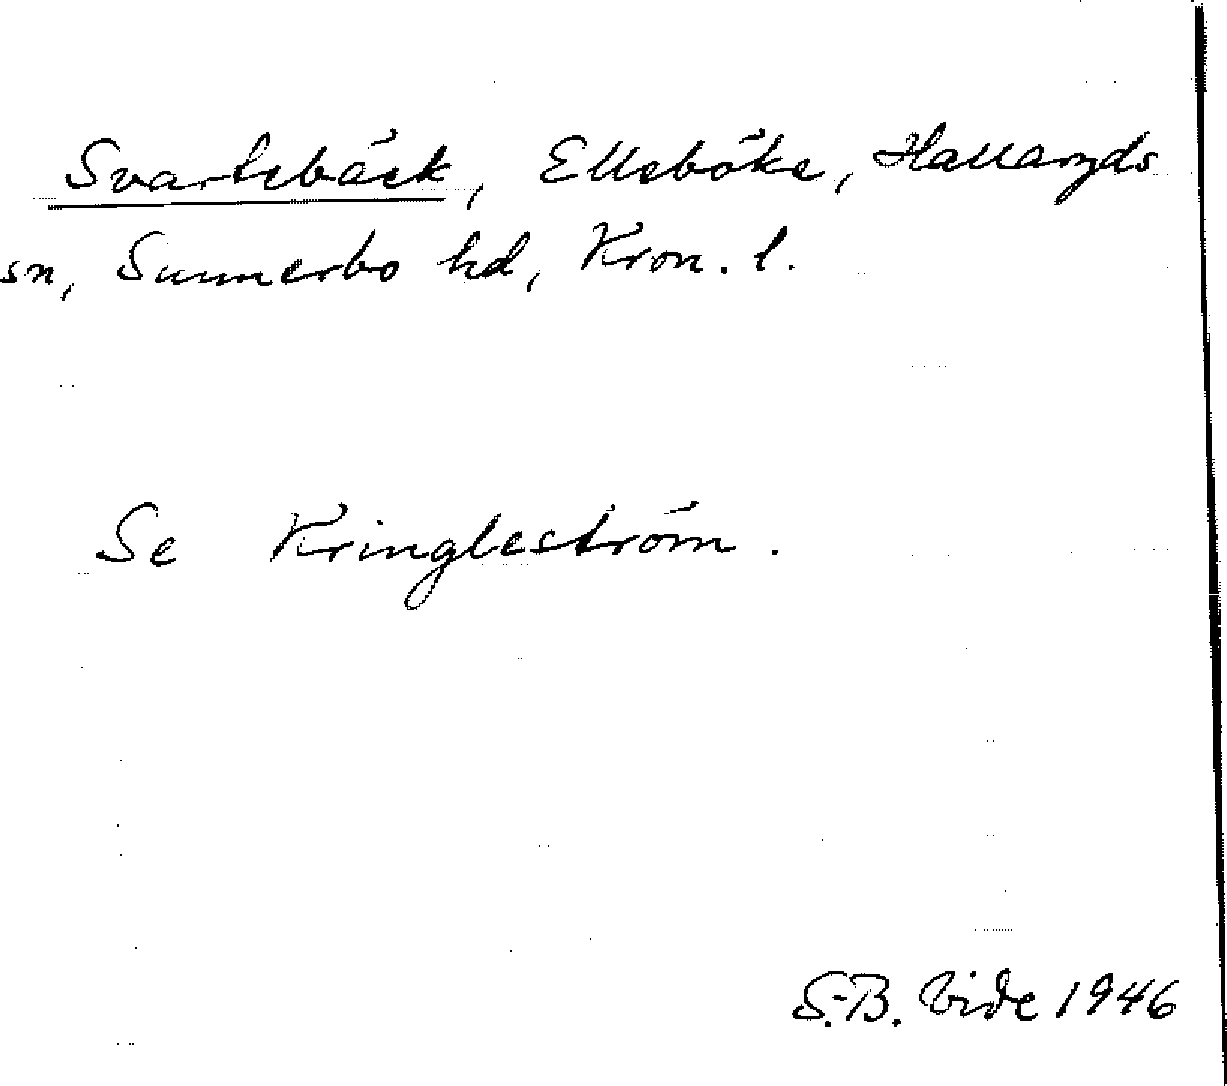 Svartebäck, Elleböke, Hallaryds
sn, Sunnerbo hd, Kron. l.
Se Kringleström.
S.-B. Vide 1946